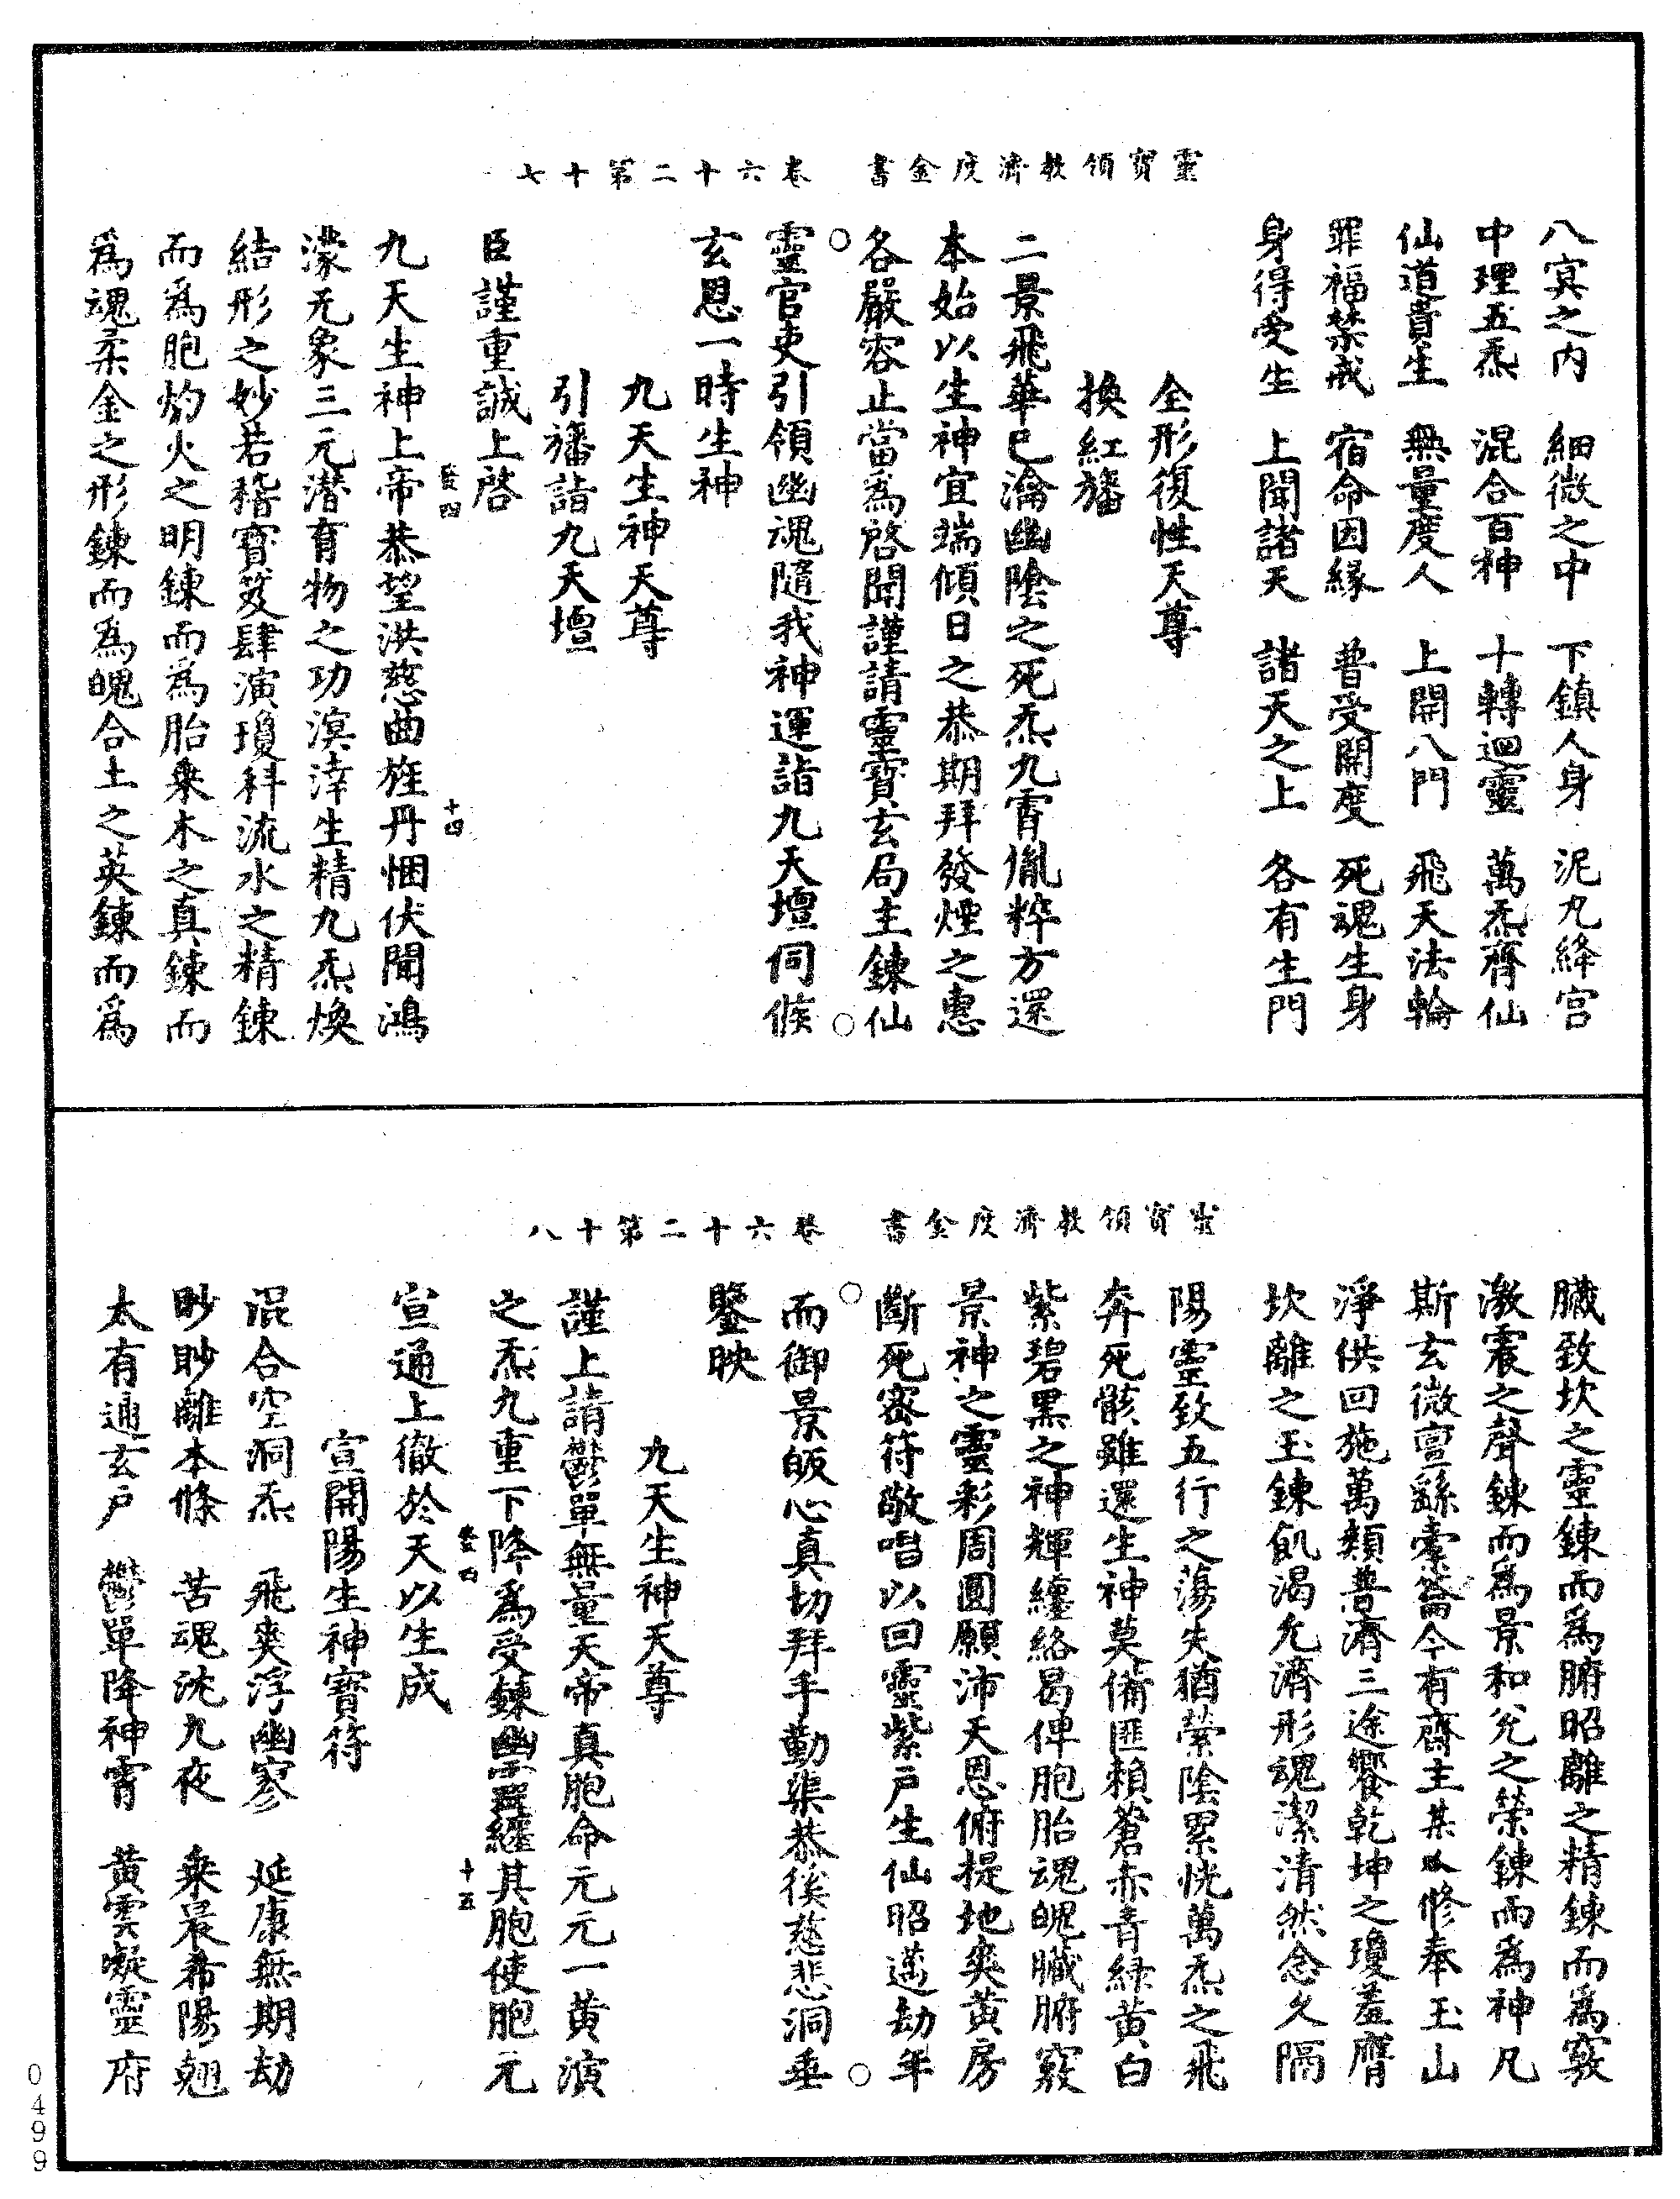 靈寶領教濟度金書　卷六十二第十七
八冥之內　細微之中　下鎮人身　泥丸絳宮
中理五炁　混合百神　十轉迴靈　萬炁齊仙
仙道貴生　無量度人　上開八門　飛天法輪
罪福禁戒　宿命因緣　普受開度　死魂生身
身得受生　上聞諸天　諸天之上　各有生門
全形復性天尊
換紅旛
二景飛華已瀹幽陰之死炁九霄胤粹方還
本始以生神宜端傾日之恭期拜發煙之惠
各嚴容止當爲啓聞謹請靈寶玄局主鍊仙
靈官吏引領幽魂隨我神運詣九天壇伺候
玄恩一時生神
九天生神天尊
引旛詣九天壇
臣謹重誠上啓
九天生神上帝恭望洪慈曲旌丹悃伏聞鴻
濛无象三元潛育物之功溟涬生精九炁煥
結形之妙若稽寶笈肆演瓊科流水之精鍊
而爲胞灼火之明鍊而爲胎乘木之真鍊而
爲魂柔金之形鍊而爲魄合土之英鍊而爲
十四
靈寶領教濟度金書　卷六十二第十八
臟致坎之靈鍊而爲腑昭離之精鍊而爲竅
激震之聲鍊而爲景和兌之榮鍊而爲神凡
斯玄微亶繇橐籥今有齋主某以修奉玉山
淨供回施萬類普濟三途饗乾坤之瓊羞膺
坎離之玉鍊飢渴允濟形魂潔清然念久隔
陽靈致五行之蕩失猶縈陰累恍萬炁之飛
奔死骸雖還生神莫備匪賴蒼赤青綠黃白
紫碧黑之神輝纏絡曷俾胞胎魂魄臟腑竅
景神之靈彩周圓願沛天恩俯提地爽黃房
斷死密符敬唱以回靈紫戶生仙昭邁劫年
而御景皈心真切拜手勤渠恭俟慈悲洞垂
鑒映
九天生神天尊
謹上請鬱單無量天帝真胞命元元一黃演
之炁九重下降爲受鍊幽靈羅纏其胞使胞元
宣通上徹於天以生成
十五
宣開陽生神寶符
混合空洞炁　飛爽浮幽寥　延康無期劫
眇眇離本條　苦魂沈九夜　乘晨希陽翹
太有通玄戶　鬱單降神霄　黃雲凝靈府
0499